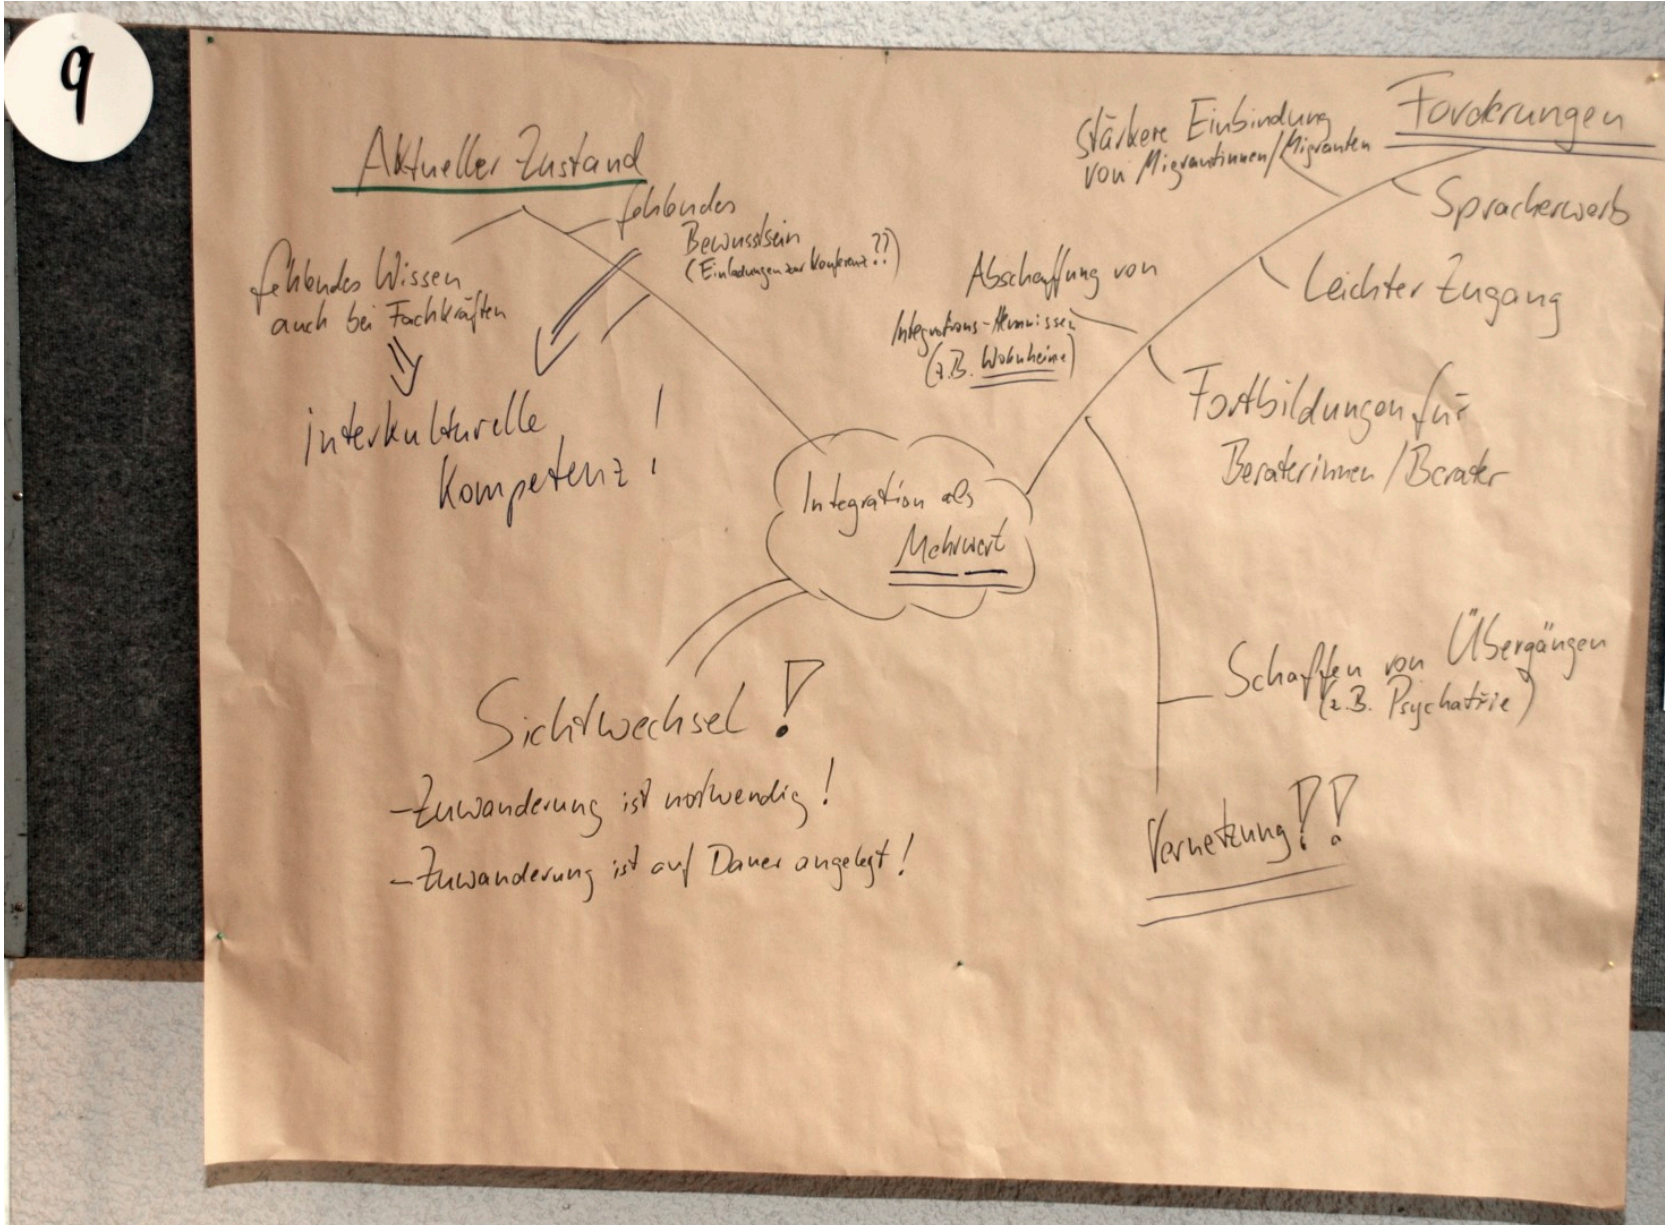 9
Aktueller Zustand
fehlendes Wissen
auch bei Fachkräften
fehlendes
Bewusstsein
(Einladungen zur Konferenz??)
interkulturelle
Kompetenz!
!
Integration als
Mehrwert
Sichtwechsel!
-Zuwanderung ist notwendig!
-Zuwanderung ist auf Dauer angelegt!
Forderungen
stärkere Einbindung
von Migrantinnen/Migranten
Spracherwerb
Leichter Zugang
Abschaffung von
Integrations-Hemnisse
(z.B. Wohnheime)
Fortbildungen für
Beraterinnen/Berater
Schaffen von Übergängen
(z.B. Psychatrie)
Vernetzung!!